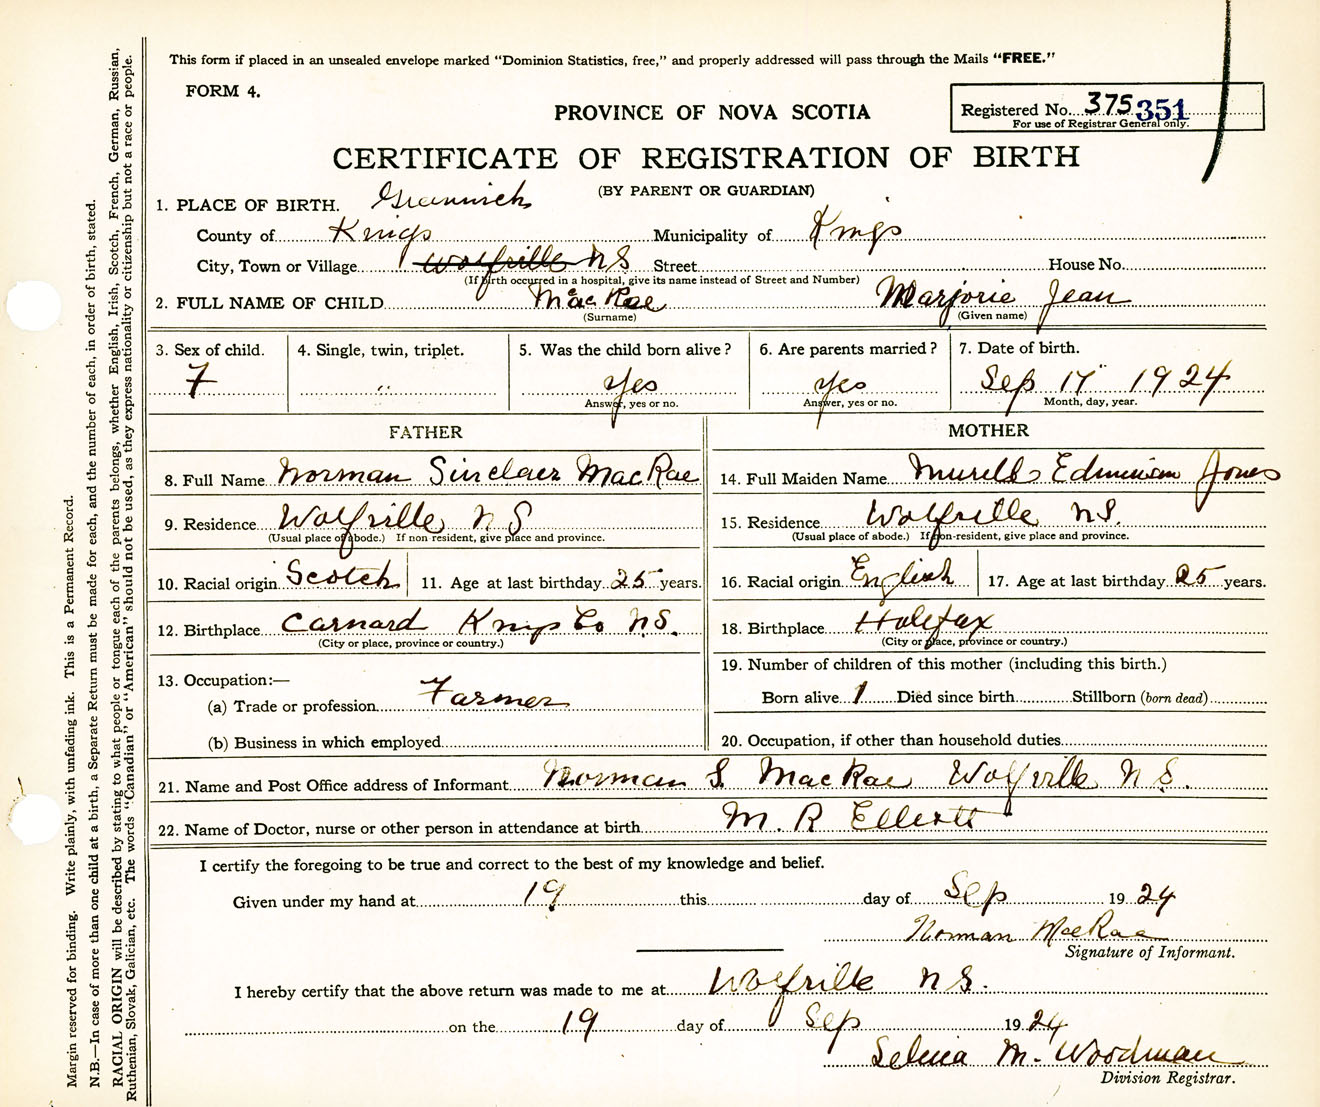 This form if placed in an unsealed envelope marked "Dominion Statistics, free," and properly addressed will pass through the Mails "FREE."
FORM 4.
PROVINCE OF NOVA SCOTIA
Registered No. 375 351
For use of Registrar General only.
CERTIFICATE OF REGISTRATION OF BIRTH
(BY PARENT OR GUARDIAN)
1. PLACE OF BIRTH. Greenwich
County of Kings Municipality of Kings
City, Town or Village Wolfville N S Street House No.
(If birth occurred in a hospital, give its name instead of Street and Number)
2. FULL NAME OF CHILD MacRae Marjorie Jean
(Surname) (Given name)
3. Sex of child. 4. Single, twin, triplet. 5. Was the child born alive? 6. Are parents married? 7. Date of birth.
F " Yes Yes Sep 17 1924
Answer, yes or no. Answer, yes or no. Month, day, year.
FATHER MOTHER
8. Full Name Norman Sinclair MacRae 14. Full Maiden Name Jones
9. Residence Wolfville N S 15. Residence Wolfville N.S.
(Usual place of abode.) If non resident, give place and province. (Usual place of abode.) If non-resident, give place and province.
10. Racial origin Scotch 11. Age at last birthday 25 years. 16. Racial origin English 17. Age at last birthday 25 years.
12. Birthplace Carnard Kings Co N.S. 18. Birthplace Halifax
(City or place, province or country.) (City or place, province or country.)
13. Occupation:— 19. Number of children of this mother (including this birth.)
(a) Trade or profession Farmer Born alive 1 Died since birth Stillborn (born dead)
(b) Business in which employed 20. Occupation, if other than household duties
21. Name and Post Office address of Informant Norman S. MacRae Wolfville N.S.
22. Name of Doctor, nurse or other person in attendance at birth M. R Elliott
I certify the foregoing to be true and correct to the best of my knowledge and belief.
Given under my hand at 19 this day of Sep 1924
Norman MacRae
Signature of Informant.
I hereby certify that the above return was made to me at Wolfville N S.
on the 19 day of Sep 1924
Selina M. Woodman
Division Registrar.
Margin reserved for binding. Write plainly, with unfading ink. This is a Permanent Record.
N.B.—In case of more than one child at a birth, a Separate Return must be made for each, and the number of each, in order of birth, stated.
RACIAL ORIGIN will be described by stating to what people or tongue each of the parents belongs, whether English, Irish, Scotch, French, German, Russian,
Ruthenian, Slovak, Galician, etc. The words "Canadian" or "American" should not be used, as they express nationality or citizenship but not a race or people.